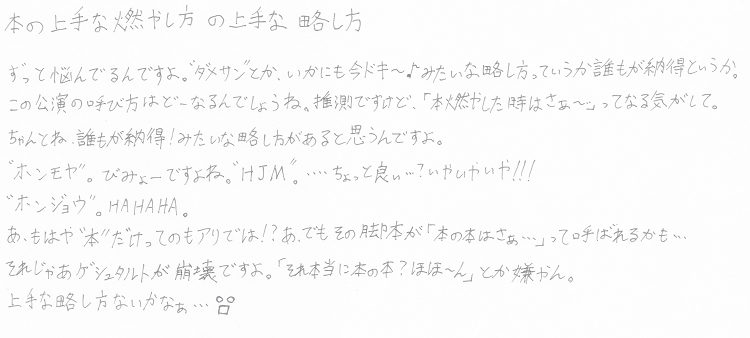 本の上手な燃やし方 の上手な 略し方
ずっと悩んでるんですよ。"ダメサン"とか、いかにも今ドキ〜♪みたいな略し方っていうか誰もが納得というか。
この公演の呼び方はどーなるんでしょうね。推測ですけど、「本燃やした時はさぁ〜」ってなる気がして。
ちゃんとね、誰もが納得!みたいな略し方があると思うんですよ。
"ホンモヤ"。びみょーですよね。"HJM"。‥‥ちょっと良い…?いやいやいや!!!
"ホンジョウ"。HAHAHA。
あ、もはや"本"だけってのもアリでは!?あ、でもその脚本が「本の本はさぁ…」って呼ばれるかも…
それじゃあゲシュタルトが崩壊ですよ。「それ本当に本の本?ほほ〜ん」とか嫌やん。
上手な略し方ないかなぁ…